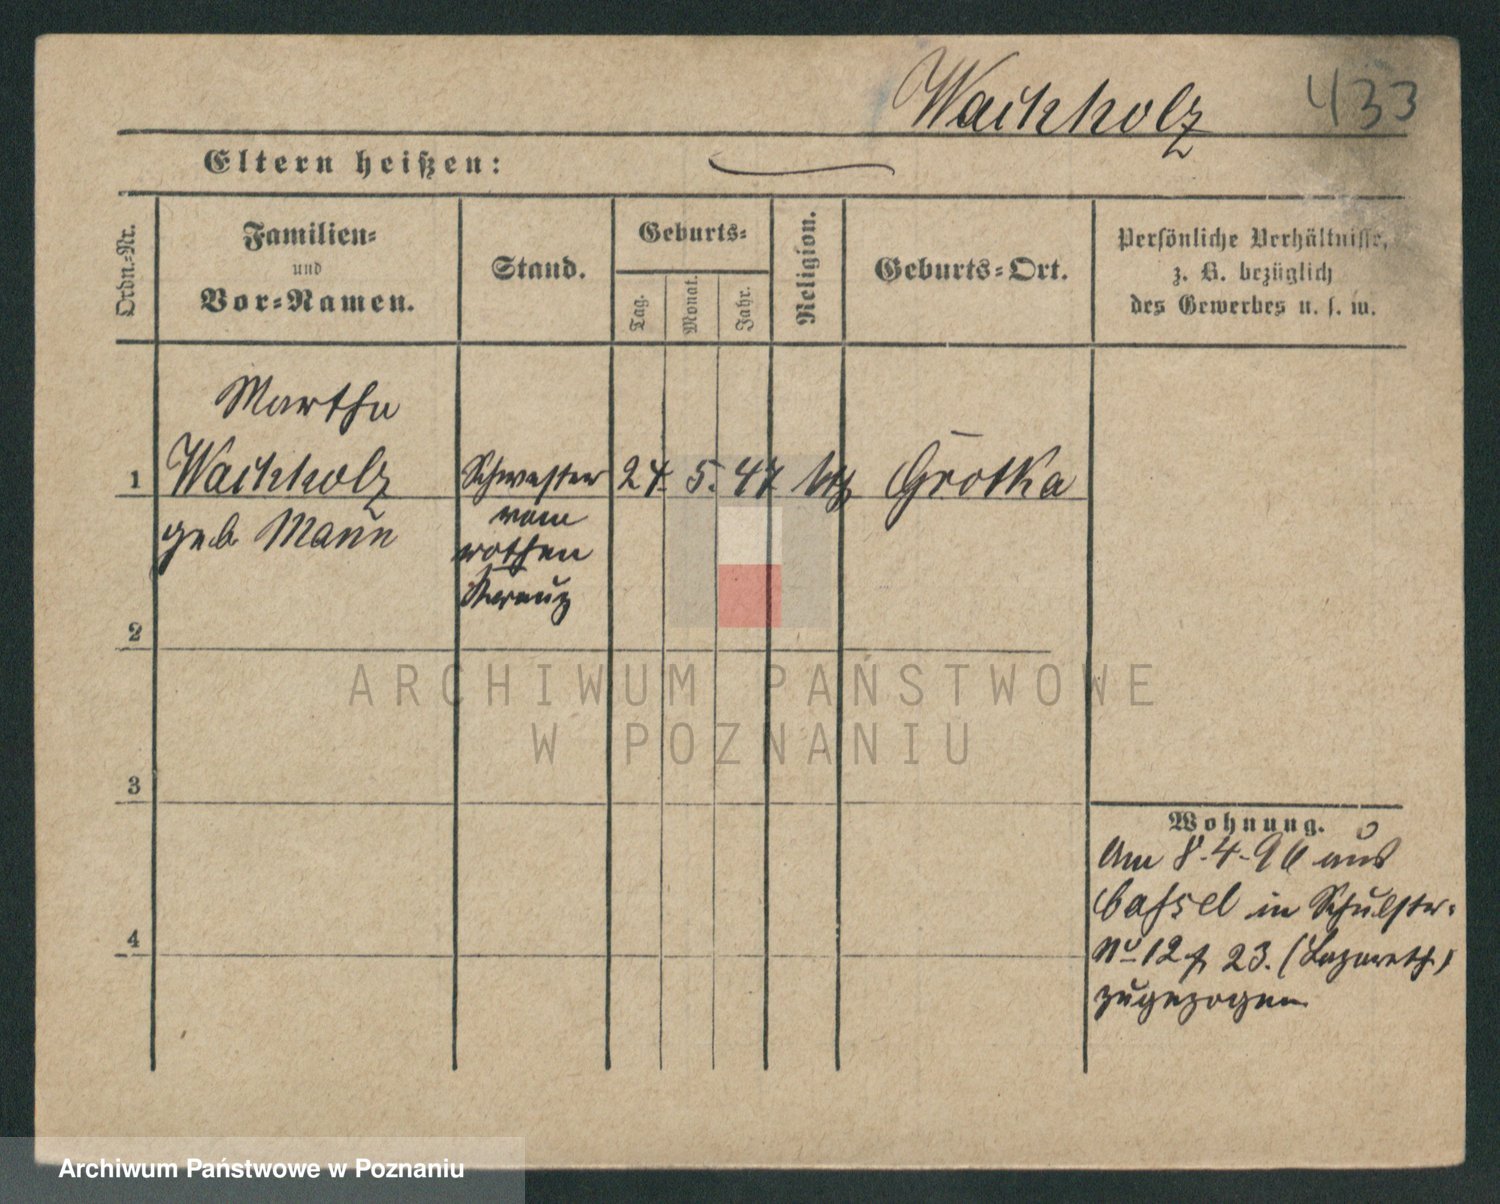 Wachholz 433
Eltern heißen:
Ordn.-Nr.
Familien-
und
Vor-Namen.
Stand.
Geburts-
Tag.
Monat.
Jahr.
Religion.
Geburts-Ort.
Persönliche Verhältnisse,
z. B. bezüglich
des Gewerbes u. s. w.
Martha
1 Wachholz Schwester 24. 5. 47 Grotka
geb Maun vom
rothen
Kreuz
2
3
4
Wohnung.
Am 8.4.96 aus
Cassel in Schulstr.
No 12 23. (Lazareth)
zugezogen
ARCHIWUM PAŃSTWOWE
W POZNANIU
Archiwum Państwowe w Poznaniu